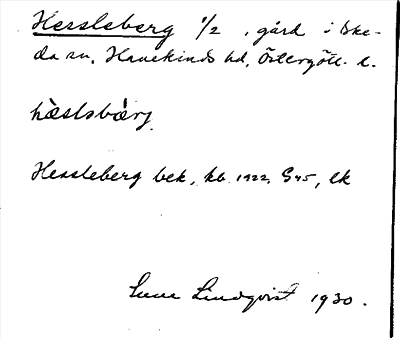 Hessleberg 1/2, gård i Ske-
da sn, Hanekinds hd, Östergötl. l.
hὰslsbærj
Hessleberg bek, kb 1922, G45, lk
Lindqvist 1930.